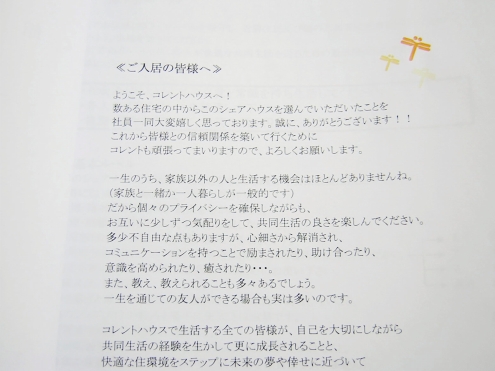 ≪ご入居の皆様へ≫
ようこそ、コレントハウスへ!
数ある住宅の中からこのシェアハウスを選んでいただいたことを
社員一同大変嬉しく思っております。誠に、ありがとうございます!!
これから皆様との信頼関係を築いて行くために
コレントも頑張ってまいりますので、よろしくお願いします。
一生のうち、家族以外の人と生活する機会はほとんどありませんね。
(家族と一緒か一人暮らしが一般的です)
だから個々のプライバシーを確保しながらも、
お互いに少しずつ気配りをして、共同生活の良さを楽しんでください。
多少不自由な点もありますが、心細さから解消され、
コミュニケーションを持つことで励まされたり、助け合ったり、
意識を高められたり、癒されたり・・・。
また、教え、教えられることも多々あるでしょう。
一生を通じての友人ができる場合も実は多いのです。
コレントハウスで生活する全ての皆様が、自己を大切にしながら
共同生活の経験を生かして更に成長されることと、
快適な住環境をステップに未来の夢や倖せに近づいて